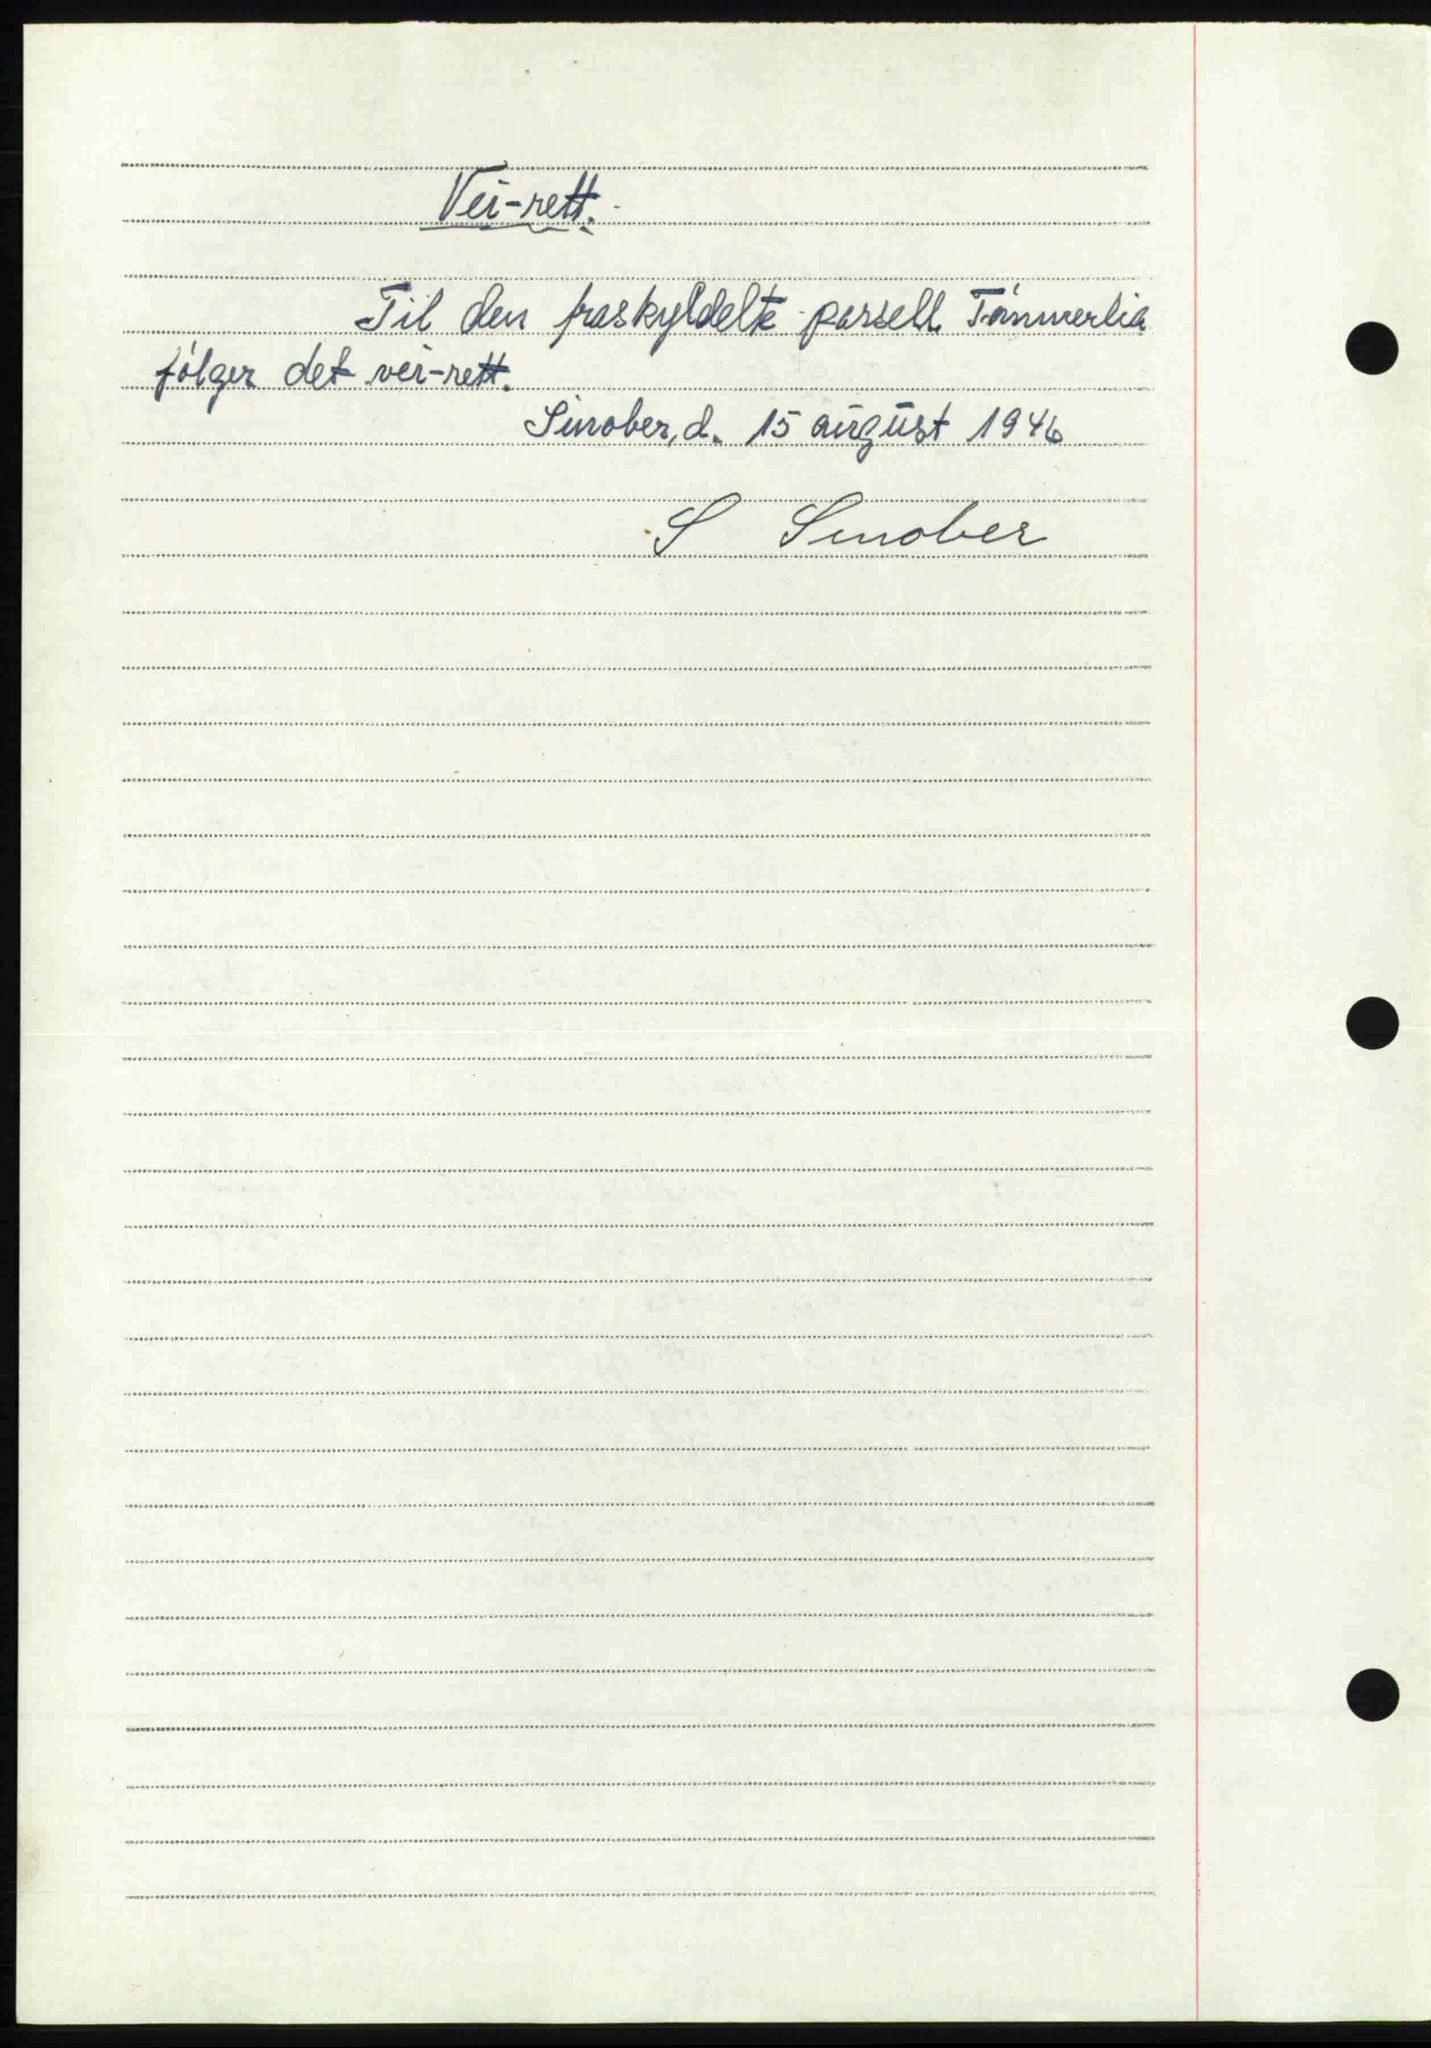 Vei-rett.
Til den fraskyldelte parsell Tømmerlia
følger det vei-rett.
Sinober, d. 15 august 1946
S Sinober